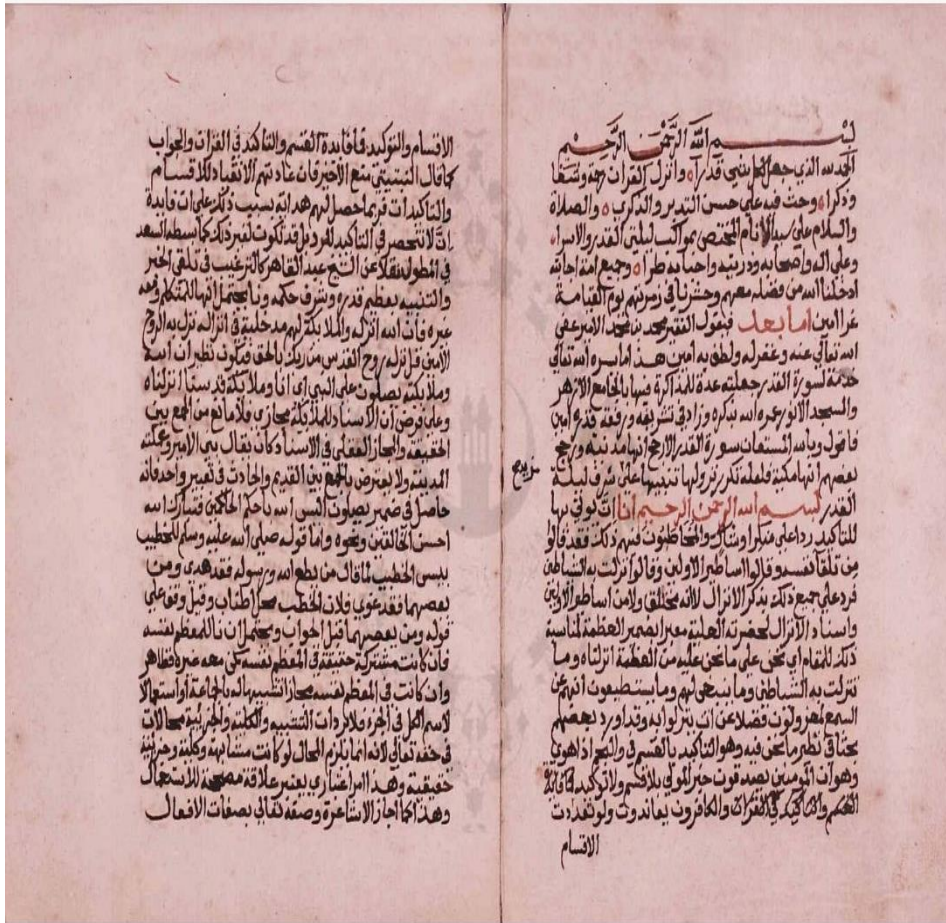 بسم الله الرحمن الرحيم
الحمد لله الذي جعل لكل شيء قدرا وانزل القران رحمة وشفا
وذكرا وحث فيه علي حسن التدبر والذكري والصلاة
والسلام علي سيد الانام المختص بمواكب ليلتي القدر والاسرا
وعلي اله واصحابه وذريته واحبابه طرا وجميع امة اجابته
ادخلنا الله من فضله معهم وحشرنا في زمرتهم يوم القيامة
غرا امين اما بعد فيقول الفقير محمد بن محمد الامير عفي
الله تعالي عنه وغفر له ولطف به امين هذا ما يسره الله تعالي
خدمة لسورة القدر جعلته عدة للمذاكرة فيها بالجامع الازهر
والمسجد الانور عمره الله بذكره وزاد في تشريفه ورفعة قدره امين
فاقول وبالله المستعان سورة القدر الارجح انها مدنية ورجح
بعضهم انها مكية فلعله تكرر نزولها تنبيها علي شرف ليلة
القدر بسم الله الرحمن الرحيم انا ان توتي بها
للتاكيد ردا علي منكر او شاك والمخاطبون فيهم ذلك فقد قالوا
من تلقا نفسه وقالوا اساطير الاولين وقالوا انزلت به الشياطين
فرد علي جميع ذلك بذكر الانزال لانه مختلق ولا من اساطير الاولين
واسناد الانزال لحضرته العلية معبرا بضمير العظمة لمناسبة
ذلك للمقام اي نحن علي ما نحن عليه من العظمة انزلناه وما
تنزلت به الشياطين وما ينبغي لهم وما يستطيعون انهم عن
السمع لمعزولون فضلا عن ان ينزلوا به وقد اورد بعضهم
بحثا في نظير ما نحن فيه وهو التاكيد بالقسم في والنجم اذا هوي
وهو ان المومنين يصدقون خبر المولي بلا قسم ولا توكيد
في القران والكافرون يعاندون ولو تعددت
الاقسام
ترجيح
الاقسام والتوكيد فما فايدة القسم والتاكيد في القران والجواب
كما قال التبتيتي منع الاخير فان عادتهم الانقياد للاقسام
والتاكيدات فربما حصل لهم هداية بسبب ذلك علي ان فايدة
ان لا تنحصر في التاكيد للرد بل قد تكون لغير ذلك كما بسطه السعد
في المطول نقلا عن الشيخ عبد القاهر كالترغيب في تلقي الخبر
والتنبيه بعظم قدره وشرف حكمه ونا يحتمل انها للمتكلم ومعه
غيره وان الله انزله والملايكة لهم مدخلية في انزاله نزل به الروح
الامين قل نزله روح القدس من ربك بالحق فيكون نظير ان الله
وملايكته يصلون علي النبي اي انا وملايكة قدسنا انزلناه
وعلي فرض ان الاسناد للملايكة مجازي فلا مانع من الجمع بين
الحقيقة والمجاز العقلي في الاسناد كان يقال بني الامير وعملته
المدينة ولا يعترض بالجمع بين القديم والحادث في تعبير واحد فانه
حاصل في ضمير يصلون اليس الله باحكم الحاكمين فتبارك الله
احسن الخالقين ونحوه واما قوله صلي الله عليه وسلم للخطيب
بيس الخطيب لما قال من يطع الله ورسوله فقد هدي ومن
يعصهما فقد غوي فلان الخطب محل اطناب وقيل وقف علي
قوله ومن يعصهما قبل الجواب ويحتمل ان نا للمعظم نفسه
فان كانت مشتركة حقيقة في المعظم نفسه كمن معه غيره فظاهر
وان كانت في المعظم نفسه مجازا تشبيها له بالجماعة او استعمالا
لاسم الكل في الجزء فلا يرد ان التشبيه والكلية والجزيية محالات
في حقه تعالي لانه انما يلزم المحال لو كانت مشابهة وكلية وجزيية
حقيقية وهذا امر اعتباري يعتبر علاقة مصححة للاستعمال
وهذا كما اجاز الاشاعرة وصفه تعالي بصفات الافعال